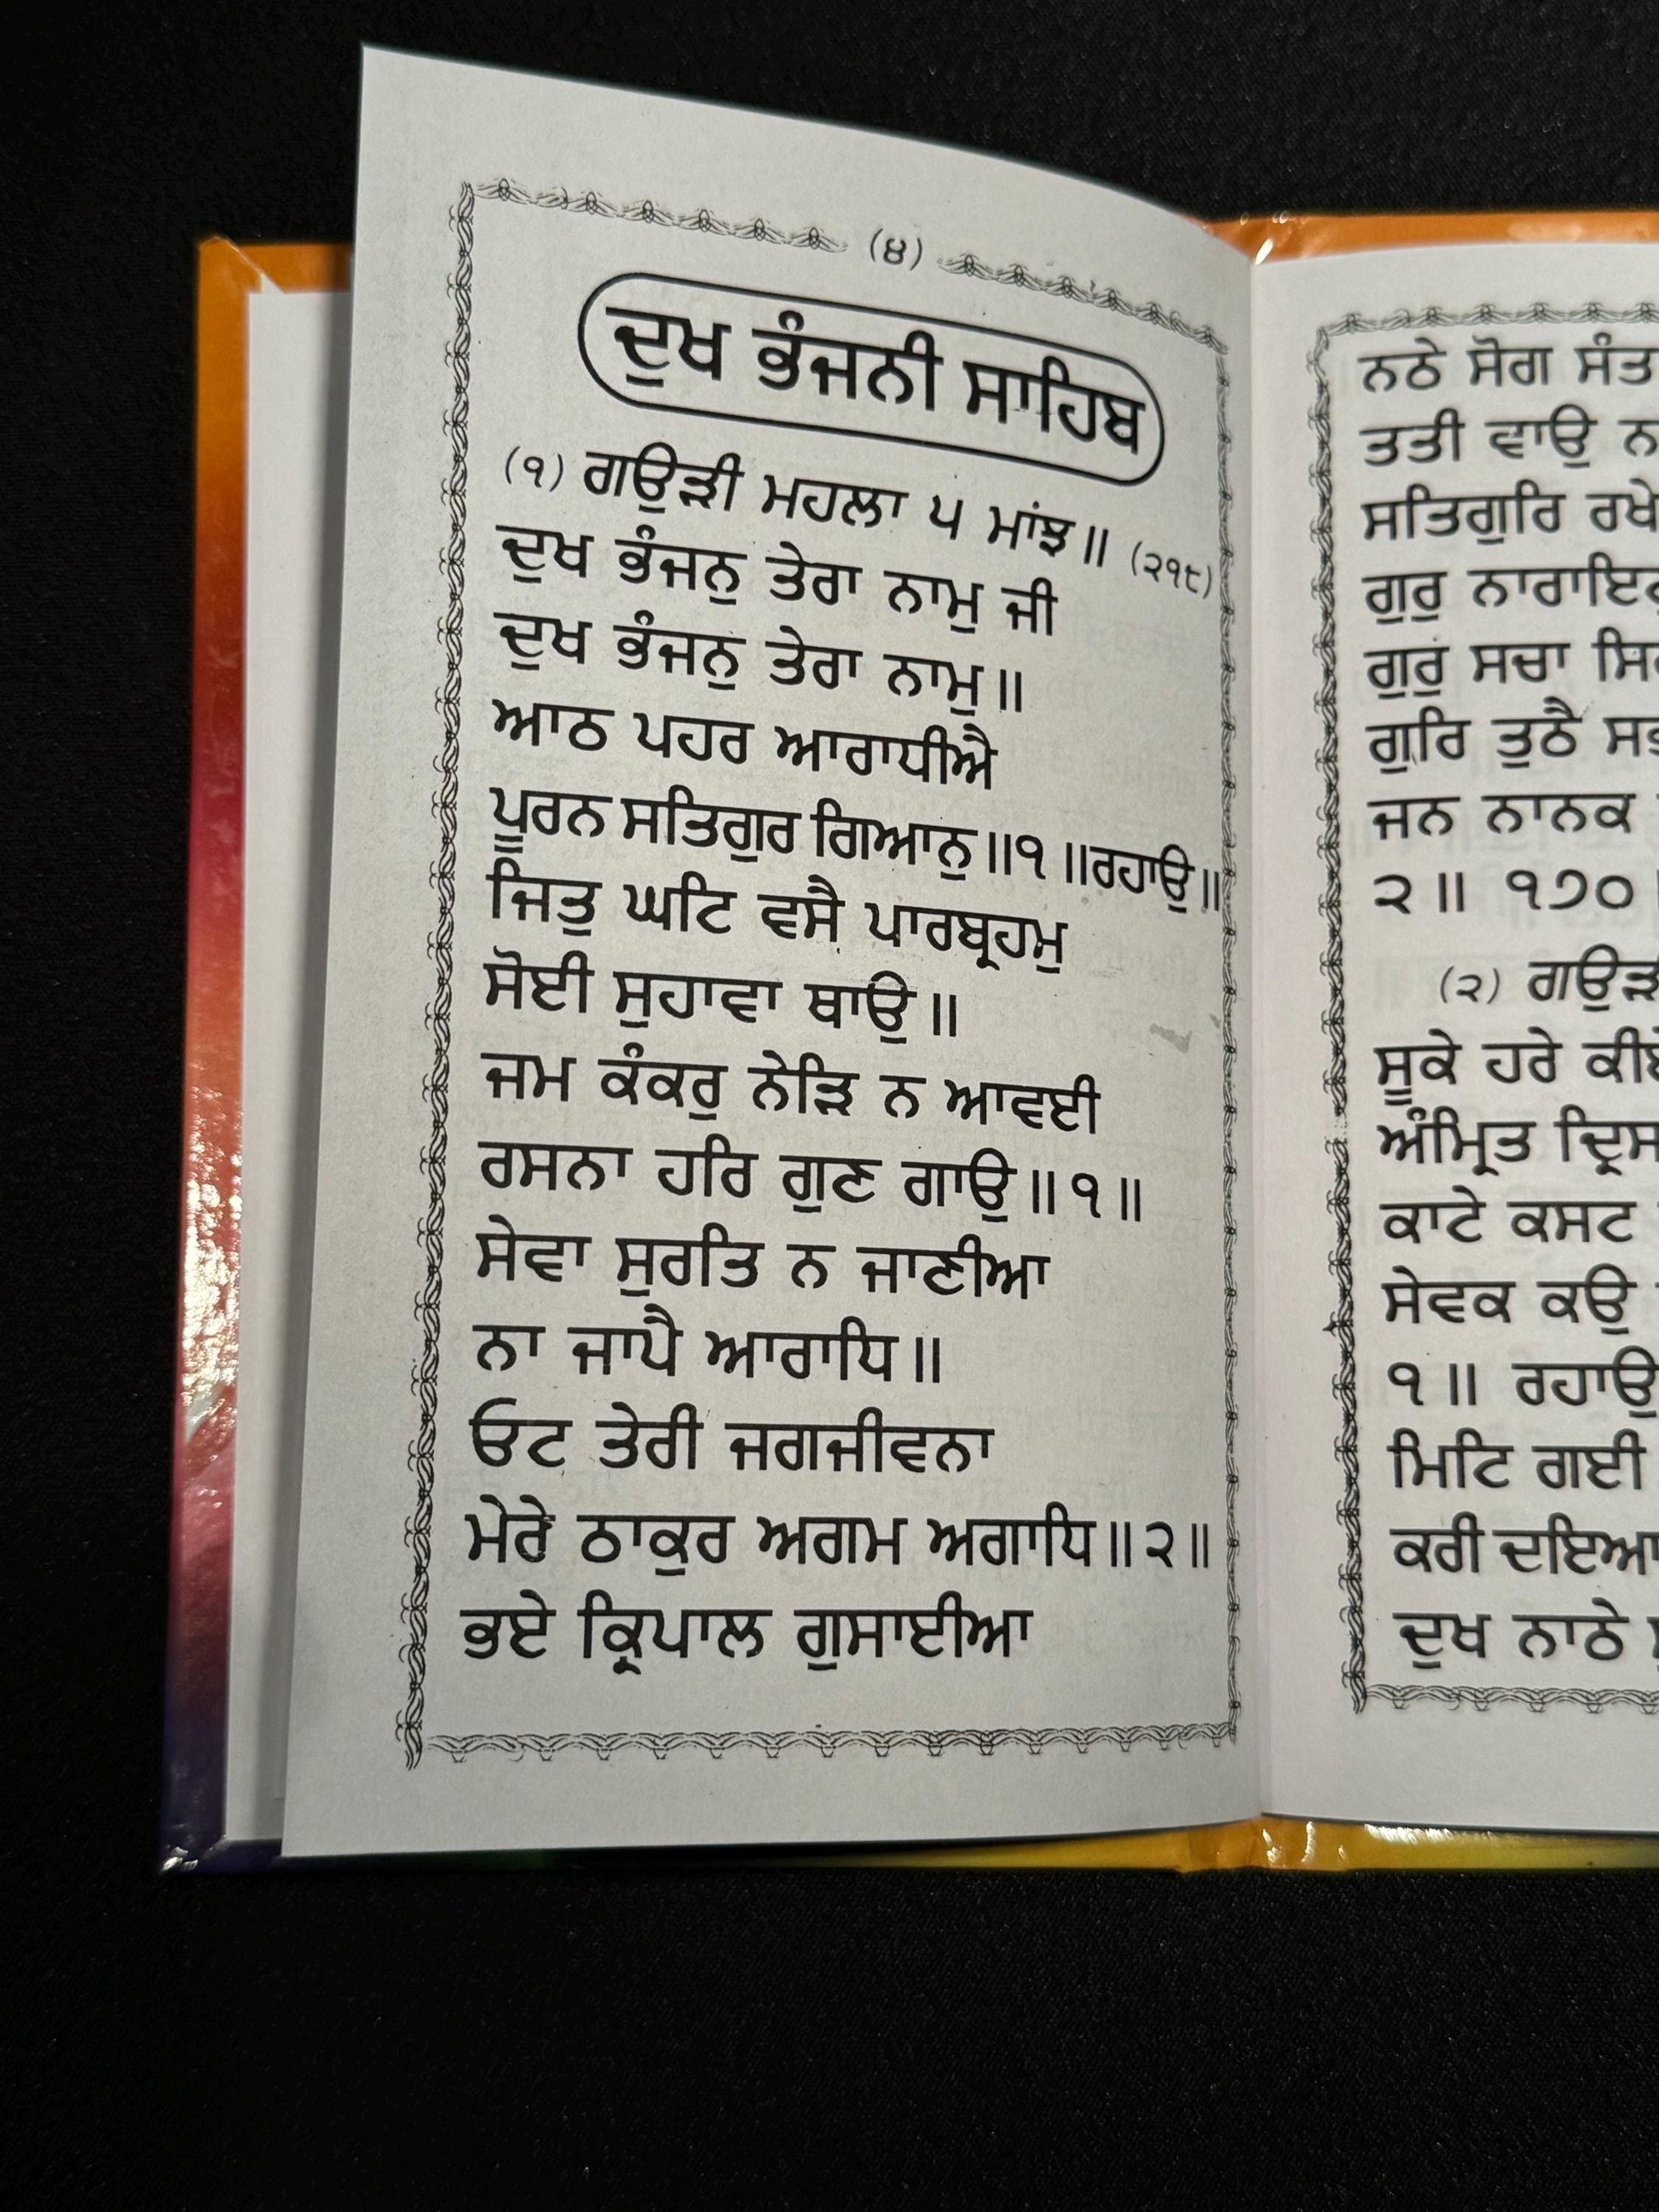 (੪)
ਦੁਖ ਭੰਜਨੀ ਸਾਹਿਬ
(੧) ਗਉੜੀ ਮਹਲਾ ੫ ਮਾਂਝ॥ (੨੧੮)
ਦੁਖ ਭੰਜਨੁ ਤੇਰਾ ਨਾਮੁ ਜੀ
ਦੁਖ ਭੰਜਨੁ ਤੇਰਾ ਨਾਮੁ॥
ਆਠ ਪਹਰ ਆਰਾਧੀਐ
ਪੂਰਨ ਸਤਿਗੁਰ ਗਿਆਨੁ॥੧॥ਰਹਾਉ॥
ਜਿਤੁ ਘਟਿ ਵਸੈ ਪਾਰਬ੍ਰਹਮੁ
ਸੋਈ ਸੁਹਾਵਾ ਥਾਉ॥
ਜਮ ਕੰਕਰੁ ਨੇੜਿ ਨ ਆਵਈ
ਰਸਨਾ ਹਰਿ ਗੁਣ ਗਾਉ॥੧॥
ਸੇਵਾ ਸੁਰਤਿ ਨ ਜਾਣੀਆ
ਨਾ ਜਾਪੈ ਆਰਾਧਿ॥
ਓਟ ਤੇਰੀ ਜਗਜੀਵਨਾ
ਮੇਰੇ ਠਾਕੁਰ ਅਗਮ ਅਗਾਧਿ॥੨॥
ਭਏ ਕ੍ਰਿਪਾਲ ਗੁਸਾਈਆ
ਨਠੇ ਸੋਗ
ਤਤੀ ਵਾਉ ਨ
ਸਤਿਗੁਰਿ ਰਖੇ
ਗੁਰੁ
ਗੁਰੁ ਸਚਾ
ਗੁਰਿ ਤੁਠੈ
ਜਨ ਨਾਨਕ
੨॥ ੧੭੦
(੨)
ਸੂਕੇ ਹਰੇ
ਅੰਮ੍ਰਿਤ
ਕਾਟੇ ਕਸਟ
ਸੇਵਕ ਕਉ
੧॥ ਰਹਾਉ
ਮਿਟਿ ਗਈ
ਕਰੀ ਦਇਆ
ਦੁਖ ਨਾਠੇ